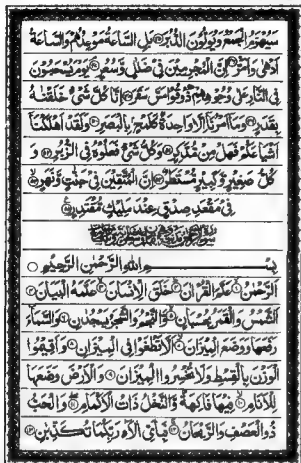 سَيُهْزَمُ الْجَمْعُ وَيُوَلُّونَ الدُّبُرَ بَلِ السَّاعَةُ مَوْعِدُهُمْ وَالسَّاعَةُ
اَدْهٰى وَاَمَرُّ اِنَّ الْمُجْرِمِيْنَ فِيْ ضَلٰلٍ وَّسُعُرٍ يَوْمَ يُسْحَبُوْنَ
فِي النَّارِ عَلٰى وُجُوْهِهِمْ ذُوْقُوْا مَسَّ سَقَرَ اِنَّا كُلَّ شَيْءٍ خَلَقْنٰهُ
بِقَدَرٍ وَمَآ اَمْرُنَآ اِلَّا وَاحِدَةٌ كَلَمْحٍۭ بِالْبَصَرِ وَلَقَدْ اَهْلَكْنَآ
اَشْيَاعَكُمْ فَهَلْ مِنْ مُّدَّكِرٍ وَكُلُّ شَيْءٍ فَعَلُوْهُ فِي الزُّبُرِ وَ
كُلُّ صَغِيْرٍ وَّكَبِيْرٍ مُّسْتَطَرٌ اِنَّ الْمُتَّقِيْنَ فِيْ جَنّٰتٍ وَّنَهَرٍ
فِيْ مَقْعَدِ صِدْقٍ عِنْدَ مَلِيْكٍ مُّقْتَدِرٍ
بِسْمِ اللهِ الرَّحْمٰنِ الرَّحِيْمِ
اَلرَّحْمٰنُ عَلَّمَ الْقُرْاٰنَ خَلَقَ الْاِنْسَانَ عَلَّمَهُ الْبَيَانَ
اَلشَّمْسُ وَالْقَمَرُ بِحُسْبَانٍ وَّالنَّجْمُ وَالشَّجَرُ يَسْجُدٰنِ وَالسَّمَآءَ
رَفَعَهَا وَوَضَعَ الْمِيْزَانَ اَلَّا تَطْغَوْا فِي الْمِيْزَانِ وَاَقِيْمُوا
الْوَزْنَ بِالْقِسْطِ وَلَا تُخْسِرُوا الْمِيْزَانَ وَالْاَرْضَ وَضَعَهَا
لِلْاَنَامِ فِيْهَا فَاكِهَةٌ وَّالنَّخْلُ ذَاتُ الْاَكْمَامِ وَالْحَبُّ
ذُو الْعَصْفِ وَالرَّيْحَانُ فَبِاَيِّ اٰلَآءِ رَبِّكُمَا تُكَذِّبٰنِ